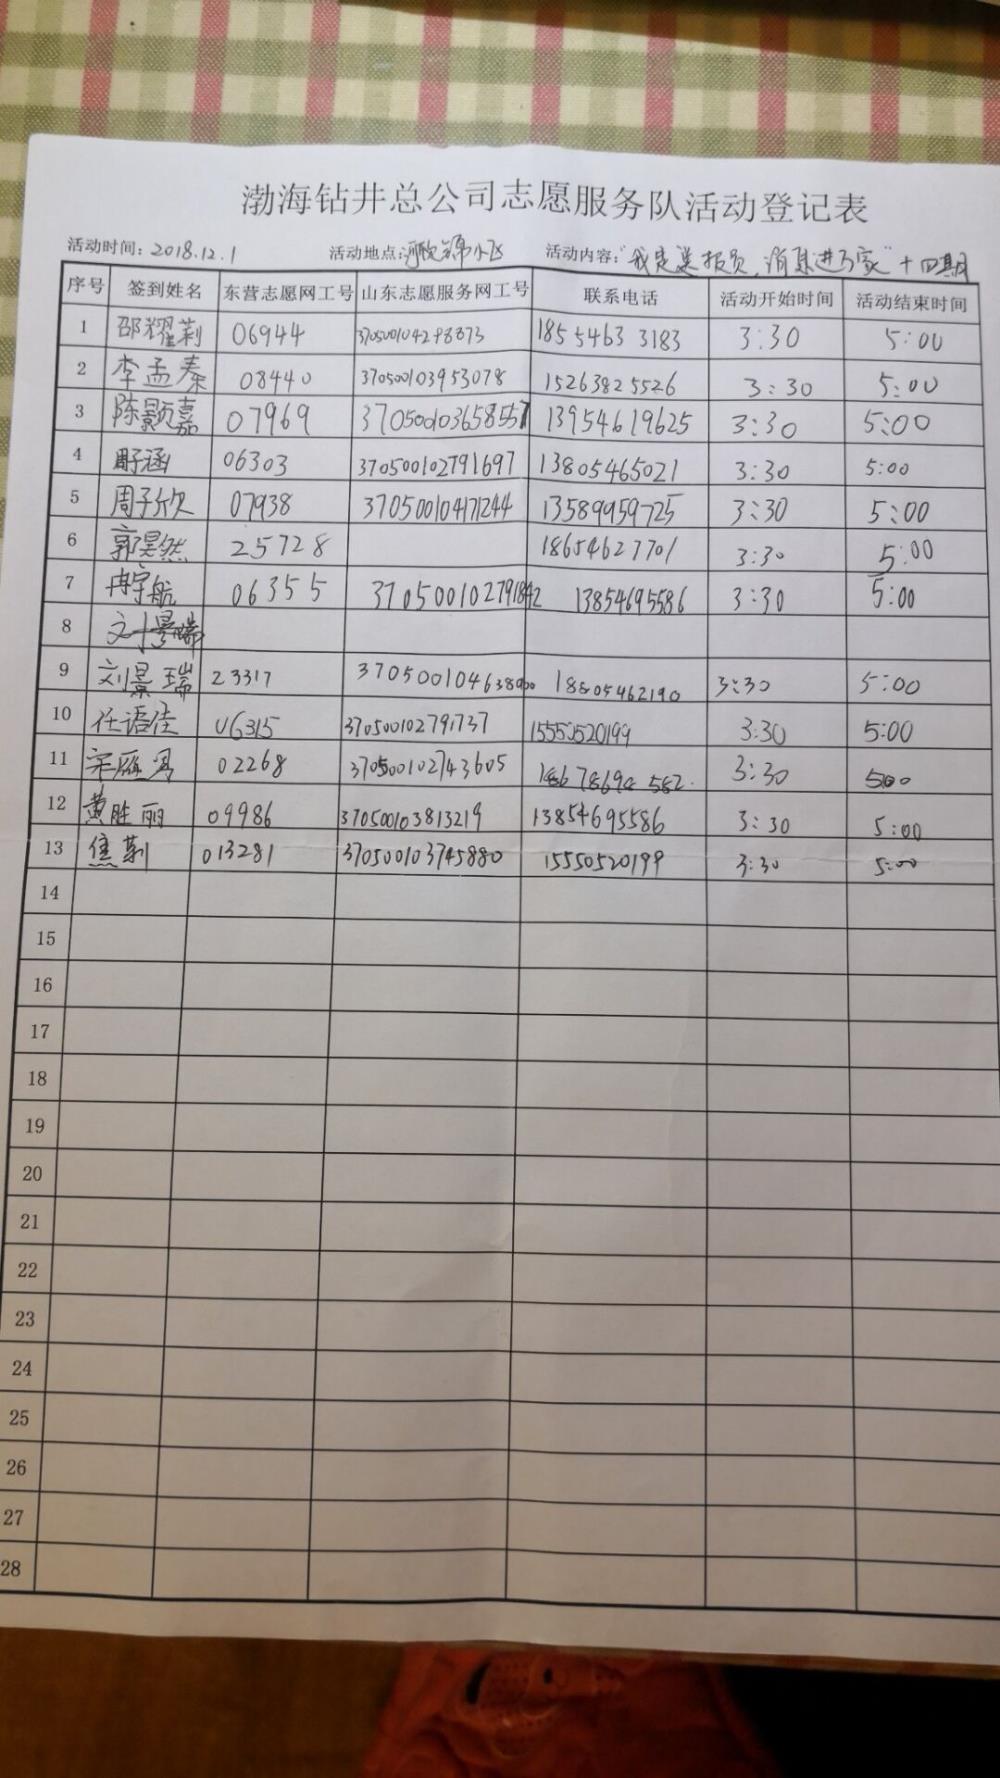 渤海钻井总公司志愿服务队活动登记表
活动时间：2018.12.1 活动地点：河 小区 活动内容：“我是送报员，消息进万家”十四期
序号 签到姓名 东营志愿网工号 山东志愿服务网工号 联系电话 活动开始时间 活动结束时间
1 邵耀莉 06944 370500104298873 18554633183 3:30 5:00
2 李孟秦 08440 370500103953078 15263825526 3:30 5:00
3 陈颢嘉 07969 370500103658557 13954619625 3:30 5:00
4 涵 06303 370500102791697 13805465021 3:30 5:00
5 周子欣 07938 370500104171244 13589959725 3:30 5:00
6 郭昊然 25728 18654627701 3:30 5:00
7 冉宇航 06355 370500102791842 13854695586 3:30 5:00
8
9 刘景瑞 23317 3:30 5:00
10 任语佳 06315 370500102791737 15550520199 3:30 5:00
11 宋雁秀 02268 370500102743605 3:30 5:00
12 黄胜丽 09986 370500103813219 13854695586 3:30 5:00
13 焦莉 013281 370500103745880 15550520199 3:30 5:00
14
15
16
17
18
19
20
21
22
23
24
25
26
27
28